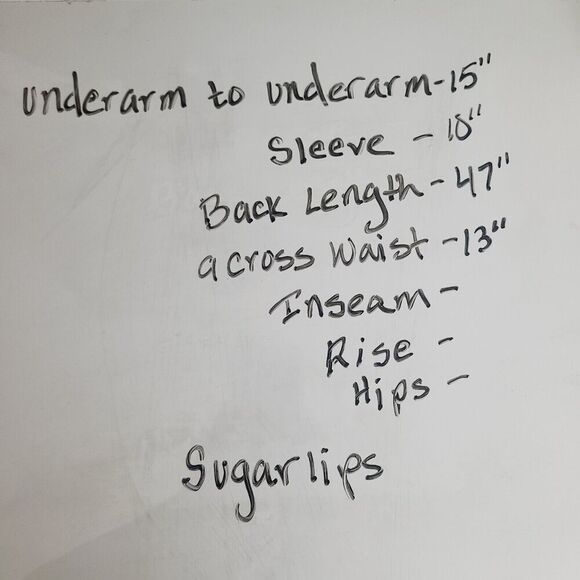 underarm to underarm-15"
Sleeve - 18"
Back Length - 47"
across Waist -13"
Inseam -
Rise -
Hips -
Sugarlips